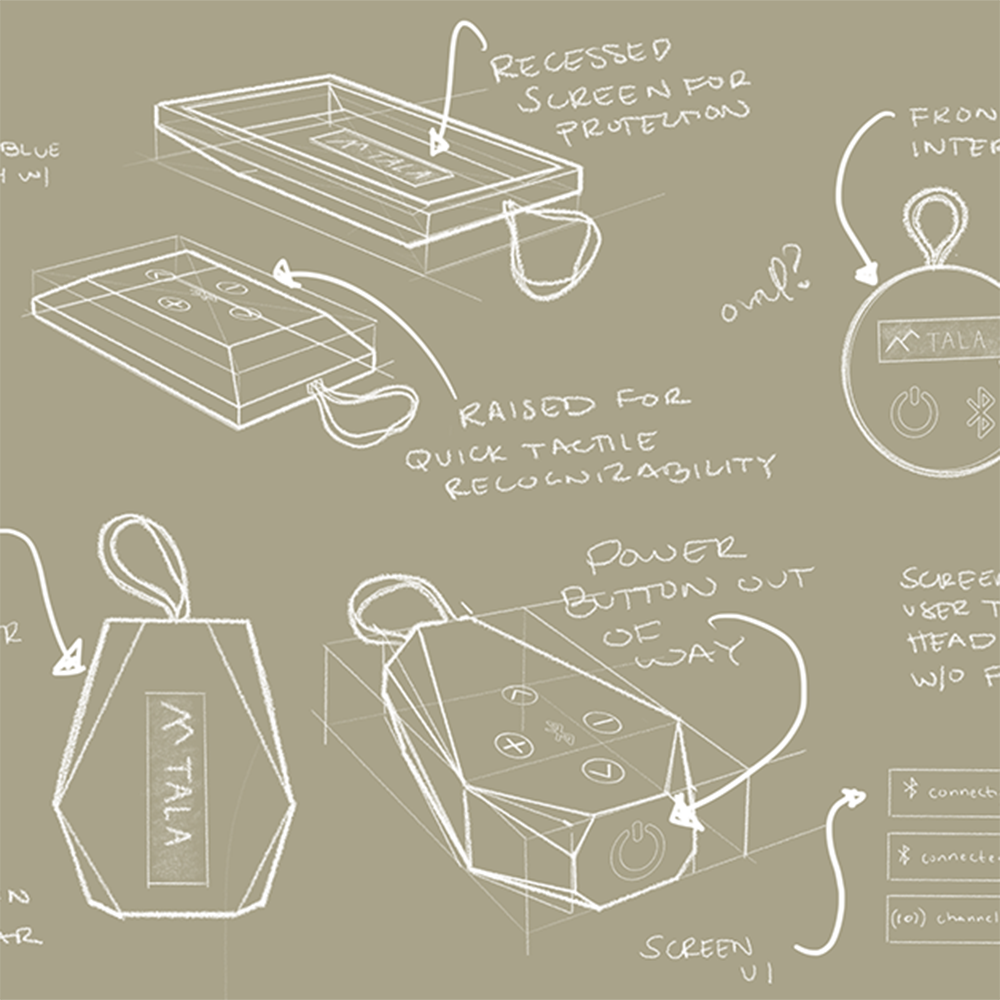 RECESSED
SCREEN FOR
PROTECTION
TALA
BLUE
W/
FRON
INTER
oval?
TALA
RAISED FOR
QUICK TACTILE
RECOGNIZABILITY
POWER
BUTTON OUT
OF
WAY
SCREEN
USER T
HEAD
W/O F
R
TALA
N
AR
connect
connecte
((o)) channel
SCREEN
UI